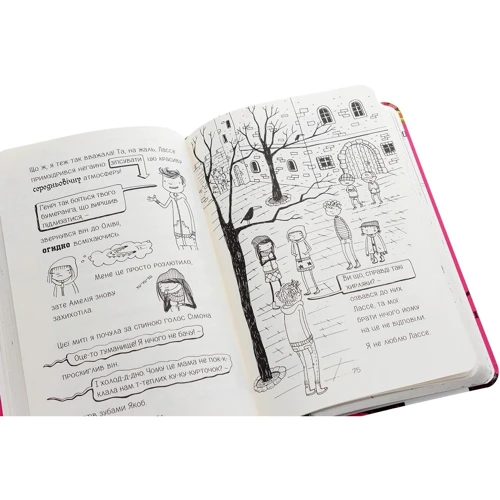 Що ж, я теж так вважала! Та, на жаль, Лассе
примудрився негайно зіпсувати цю красиву
середньовічну атмосферу!
Геній так боїться твого
бумеранга, що вирішив
підлизатися –
звернувся він до Олівії,
огидно всміхаючись.
Мене це просто розлютило,
зате Амелія знову
захихотіла.
Цієї миті я почула за спиною голос Сімона.
Оце-то туманище! Я нічого не бачу! –
проскиглив він.
І холод-д-дно. Чому це мама не пок-к-
клала нам т-теплих ку-ку-курточок? –
зубами Якоб.
Ви що, справді такі
хирляки? –
озвався до них
Лассе, та мої
брати нічого йому
на це не відповіли.
Я не люблю Лассе.
75